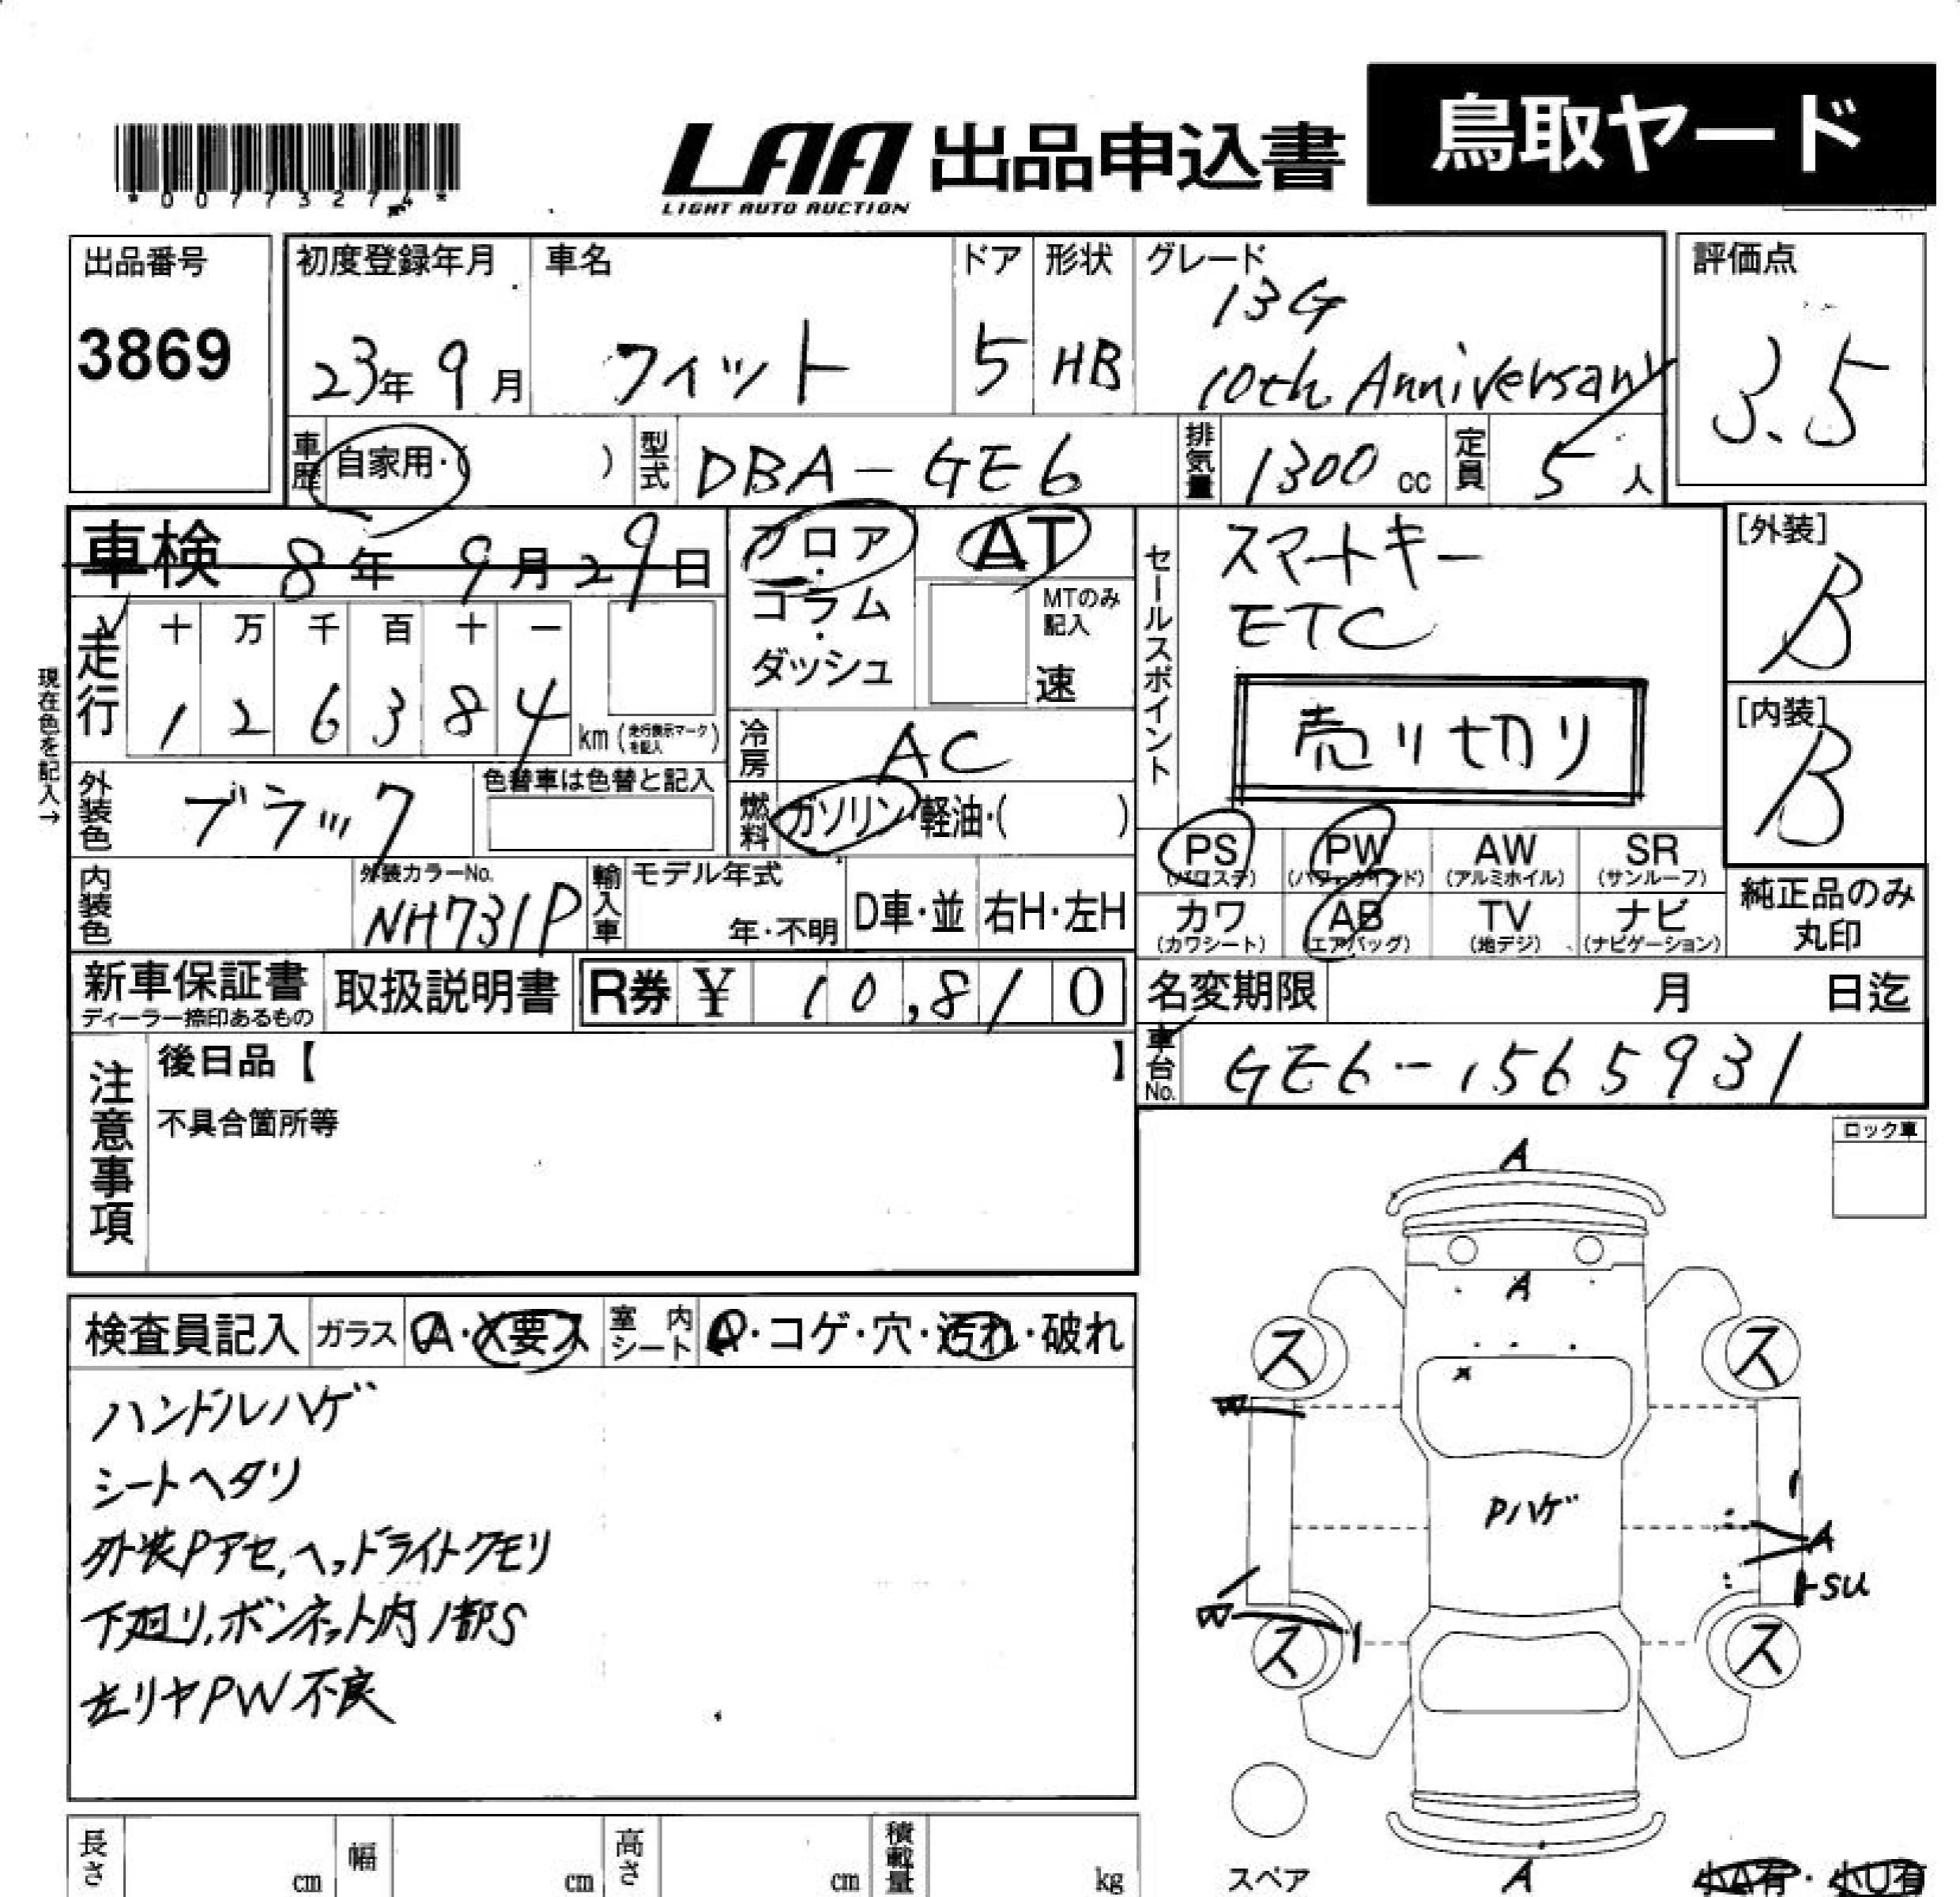 *00773274*
LAA 出品申込書 鳥取ヤード
LIGHT AUTO AUCTION
出品番号 初度登録年月 車名 ドア 形状 グレード 評価点
3869 23年 9月 フィット 5 HB 13G
10th Anniversary 3.5
車歴 自家用・( ) 型式 DBA-GE6 排気量 1300 cc 定員 5 人
車検 8年 9月 29日 フロア・コラム・ダッシュ AT
MTのみ記入 速
セールスポイント スマートキー
ETC
売り切り
[外装] B
[内装] B
現在色を記入→
走行 十 万 千 百 十 一
1 2 6 3 8 4 km (走行表示マークを記入)
冷房 AC
外装色 ブラック 色替車は色替と記入
燃料 ガソリン・軽油・( )
PS (パワステ) PW (パワーウインド) AW (アルミホイル) SR (サンルーフ)
カワ (カワシート) AB (エアバッグ) TV (地デジ) ナビ (ナビゲーション)
純正品のみ丸印
内装色 外装カラーNo. NH731P 輸入車 モデル年式 年・不明 D車・並 右H・左H
新車保証書 取扱説明書 R券 ¥ 10,810
ディーラー捺印あるもの
名変期限 月 日迄
車台No. GE6-1565931
注意事項 後日品【 】
不具合箇所等
ロック車
検査員記入 ガラス A・X要ス 室内シート A・コゲ・穴・汚れ・破れ
ハンドルハゲ
シートヘタリ
外装Pアセ,ヘッドライトクモリ
下廻り,ボンネット内1部S
左リヤPW不良
A
A
ス ス
x
W
Pハゲ
A
SU
W
ス ス
A
スペア 小A有・小U有
長さ cm 幅 cm 高さ cm 積載量 kg